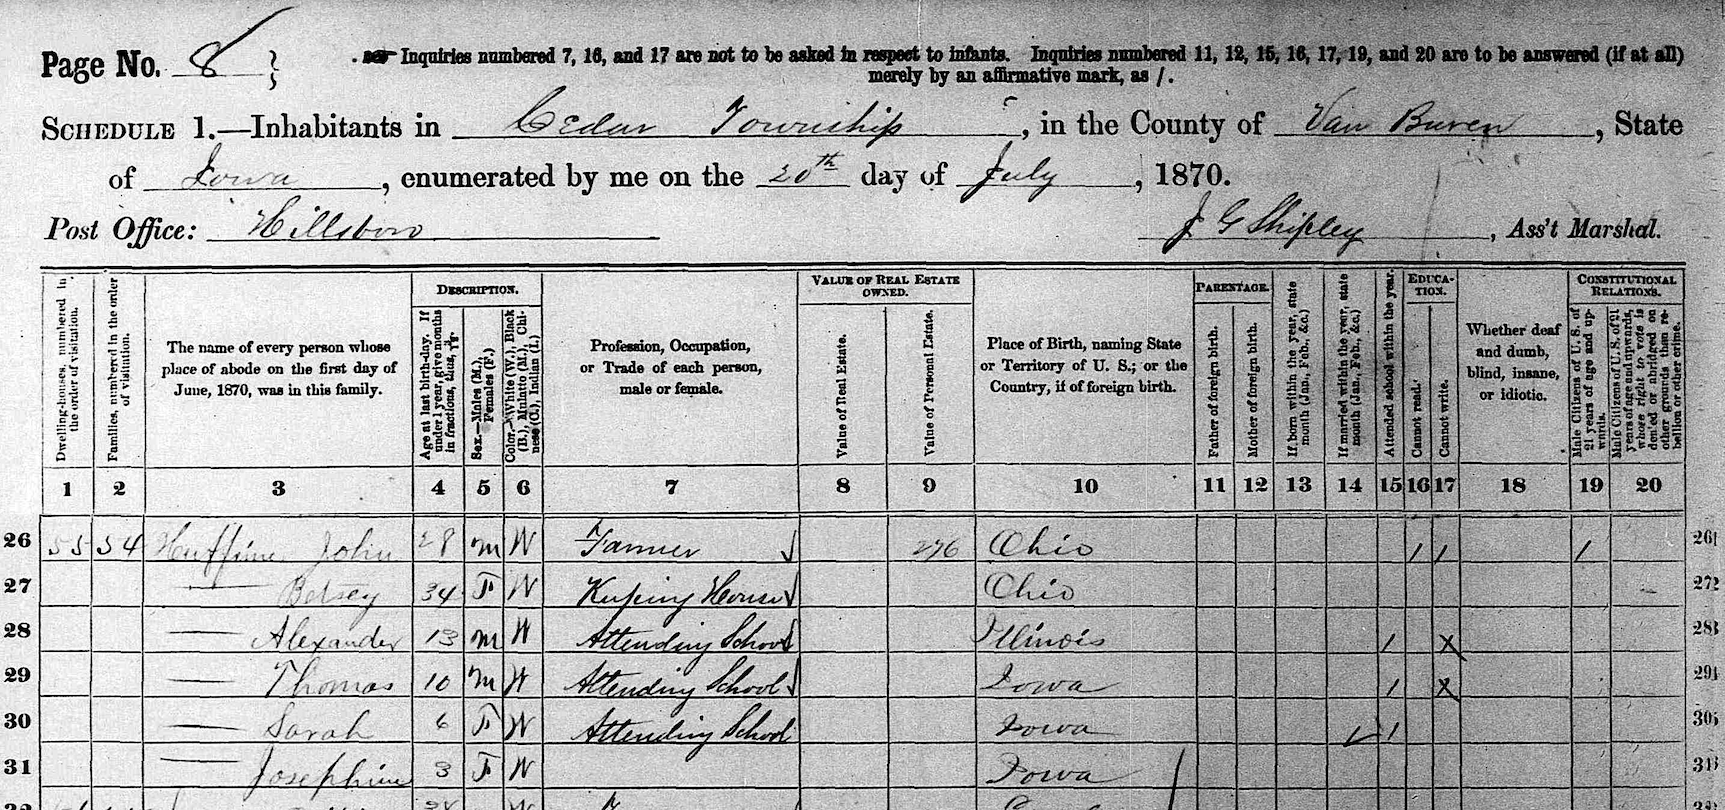 Page No. 8
Inquiries numbered 7, 16, and 17 are not to be asked in respect to infants. Inquiries numbered 11, 12, 15, 16, 17, 19, and 20 are to be answered (if at all)
merely by an affirmative mark, as /.
SCHEDULE 1.—Inhabitants in Cedar Township, in the County of Van Buren, State
of Iowa, enumerated by me on the 20th day of July, 1870.
Post Office: Hillsboro
J G Shipley, Ass't Marshal.
Dwelling-houses, numbered in the order of visitation.
Families, numbered in the order of visitation.
The name of every person whose place of abode on the first day of June, 1870, was in this family.
DESCRIPTION.
Age at last birth-day. If under 1 year, give months in fractions, thus,
Sex.—Males (M.), Females (F.)
Color.—White (W.), Black (B.), Mulatto (M.), Chinese (C.), Indian (I.)
Profession, Occupation, or Trade of each person, male or female.
VALUE OF REAL ESTATE OWNED.
Value of Real Estate.
Value of Personal Estate.
Place of Birth, naming State or Territory of U. S.; or the Country, if of foreign birth.
PARENTAGE.
Father of foreign birth.
Mother of foreign birth.
If born within the year, state month (Jan., Feb., &c.)
If married within the year, state month (Jan., Feb., &c.)
Attended school within the year.
EDUCATION.
Cannot read.
Cannot write.
Whether deaf and dumb, blind, insane, or idiotic.
CONSTITUTIONAL RELATIONS.
Male Citizens of U. S. of 21 years of age and upwards.
Male Citizens of U. S. of 21 years of age and upwards, whose right to vote is denied or abridged on other grounds than rebellion or other crime.
1 2 3 4 5 6 7 8 9 10 11 12 13 14 15 16 17 18 19 20
26 55 54 Huffine John 28 M W Farmer 276 Ohio / / / 26
27 —— Betsey 34 F W Keeping House Ohio 27
28 —— Alexander 13 M W Attending School Illinois / X 28
29 —— Thomas 10 M W Attending School Iowa / X 29
30 —— Sarah 6 F W Attending School Iowa / 30
31 —— Josephine 3 F W Iowa 31